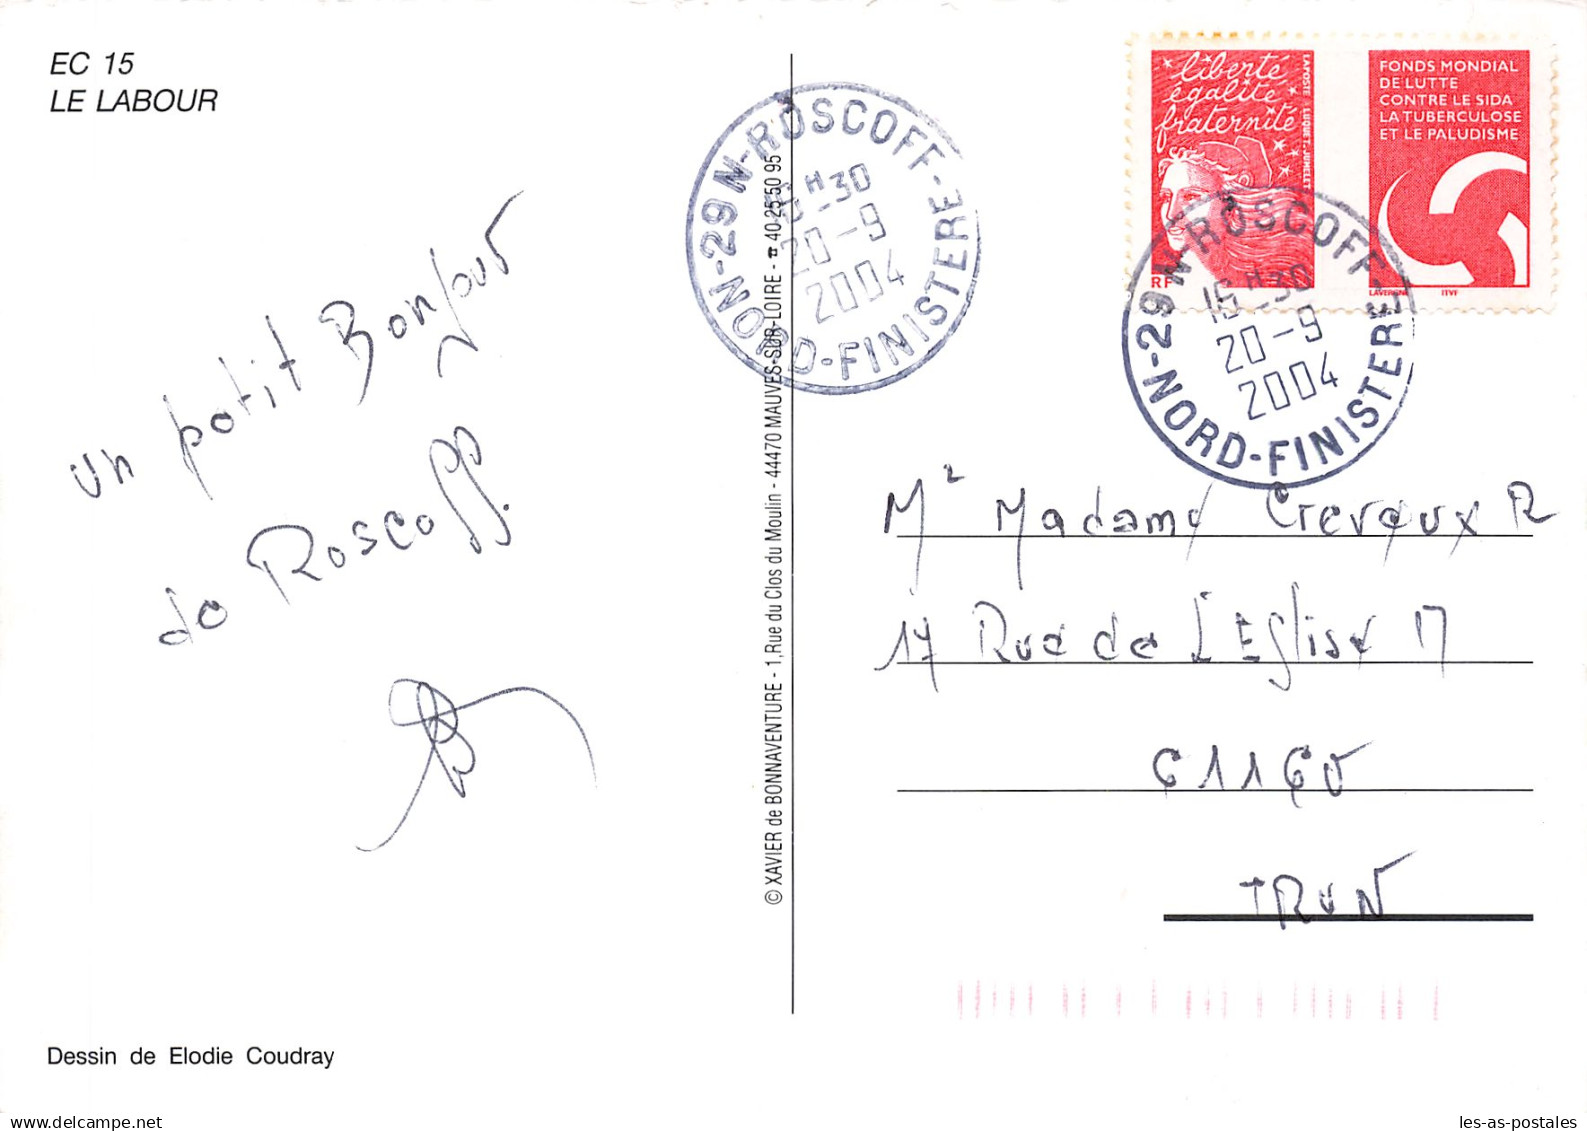 EC 15
LE LABOUR
un petit Bonjour
de Roscoff.
Dessin de Elodie Coudray
© XAVIER de BONNAVENTURE - 1, Rue du Clos du Moulin - 44470 MAUVES-SUR-LOIRE - ☎ 40 25 50 95
29 N-ROSCOFF-NORD-FINISTERE-
16H-30
20-9
2004
liberté
égalité
fraternité
LA POSTE LUQUET-JUMELET
RF
FONDS MONDIAL
DE LUTTE
CONTRE LE SIDA
LA TUBERCULOSE
ET LE PALUDISME
LAVERGNE ITVF
29 N-ROSCOFF-NORD-FINISTERE-
16H-30
20-9
2004
Mr Madame Crevaux R
17 Rue de L'Eglise
61160
TRUN
les-as-postales
delcampe.net